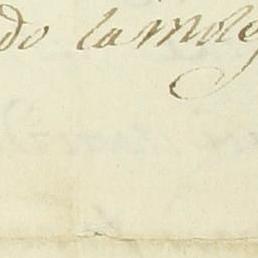 do la mole